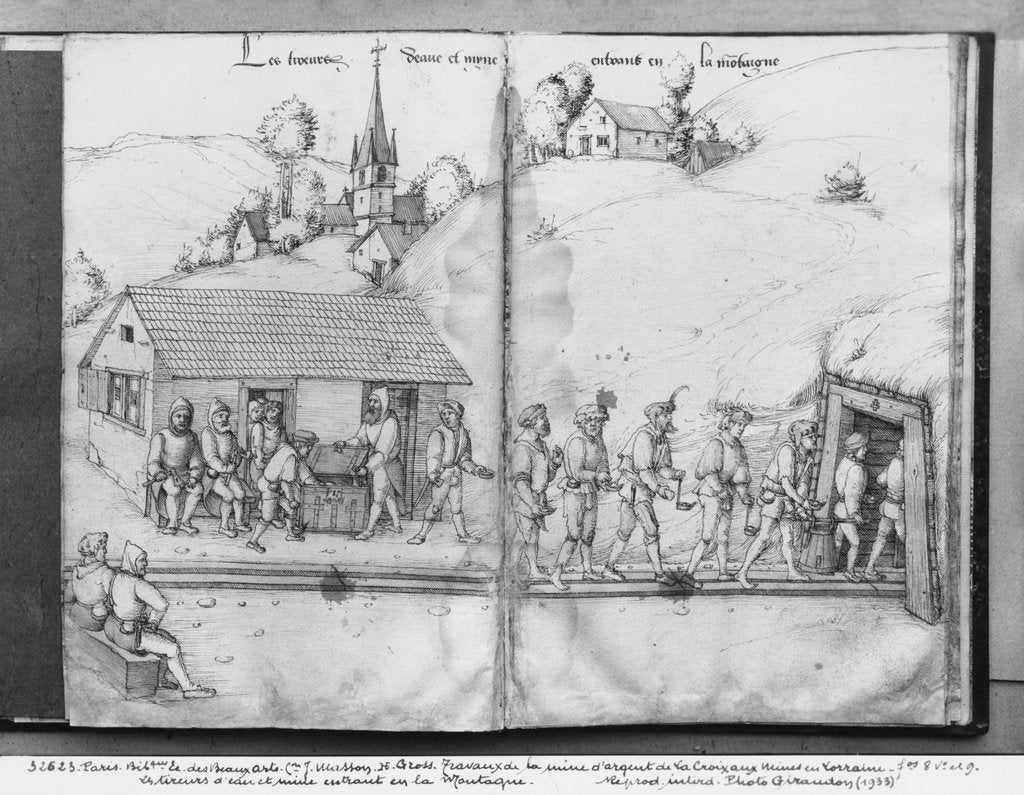 Les tireurs deaue et myne entrans en la mõtaigne
32623. Paris. Bibque Ec. des Beaux arts. (on J. Masson. H. Gross. Travaux de la mine d'argent de La Croix aux Mines en Lorraine - fos 8 vo et 9.
Les tireurs d'eau et mine entrant en la Montagne. Reprod. interd. Photo Giraudon (1933)